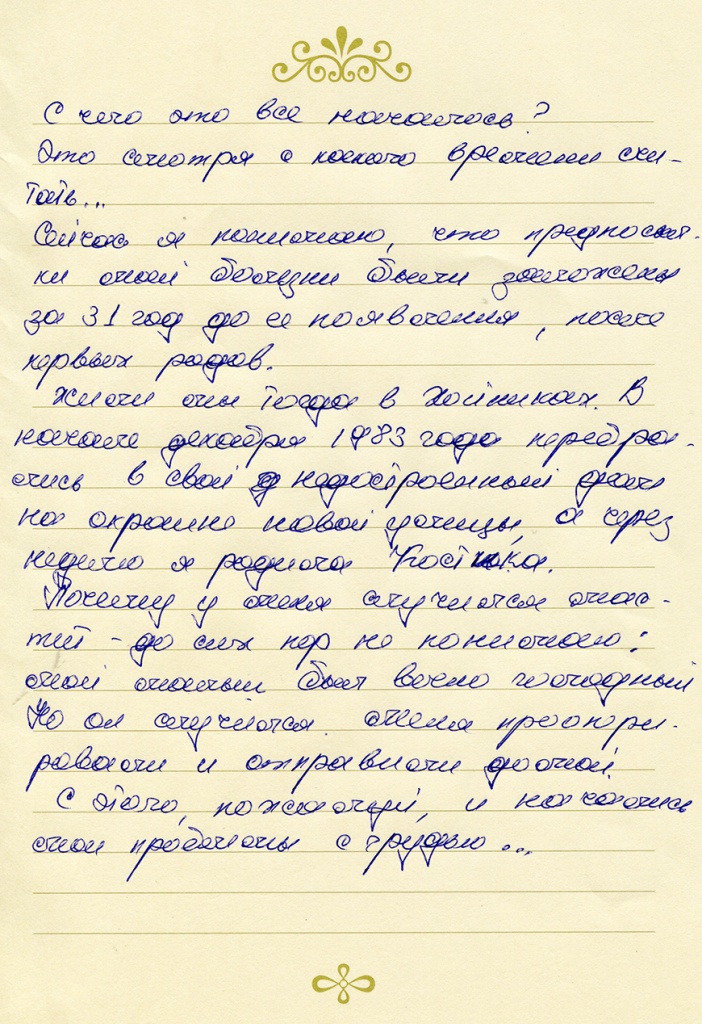 С чего это все началось?
Это смотря с какого времени счи-
тать...
Сейчас я понимаю, что предпосыл-
ки моей болезни были заложены
за 31 год до ее появления, после
первых родов.
Жили мы тогда в Хойниках. В
начале декабря 1983 года перебра-
лись в свой недостроенный дом
на окраине новой улицы, а через
неделю я родила Костика.
Почему у меня случился мас-
тит - до сих пор не понимаю:
мой малыш был вечно голодный
Но он случился. Меня проопри-
ровали и отправили домой.
С этого, пожалуй, и начались
мои проблемы с грудью...